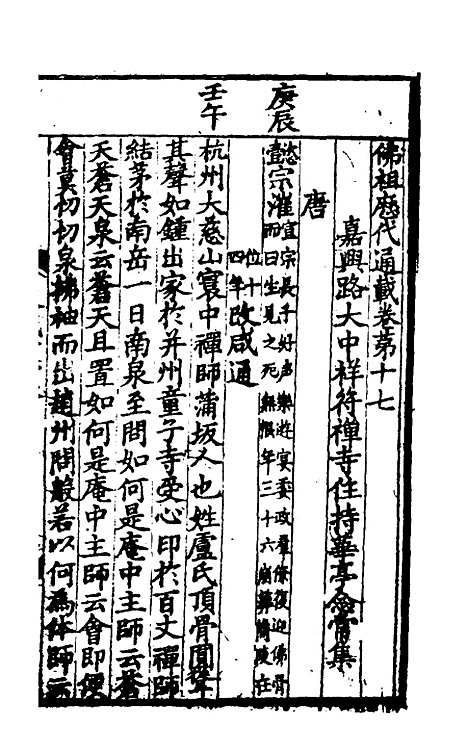 佛祖歷代通載卷第十七
嘉興路大中祥符禪寺住持華亭念常集
唐
庚辰
懿宗漼
宣宗長子好声樂遊宴委政羣條復迎佛骨
而曰生見之死無恨年三十六崩葬簡陵在
位十
四年
改咸通
壬午
杭州大慈山寰中禪師蒲坂人也姓盧氏頂骨圓聳
其聲如鍾出家於并州童子寺受心印於百丈禪師
結茅於南岳一日南泉至問如何是庵中主師云蒼
天蒼天泉云蒼天且置如何是庵中主師云會即便
會莫切切泉拂袖而出趙州問般若以何為体師云